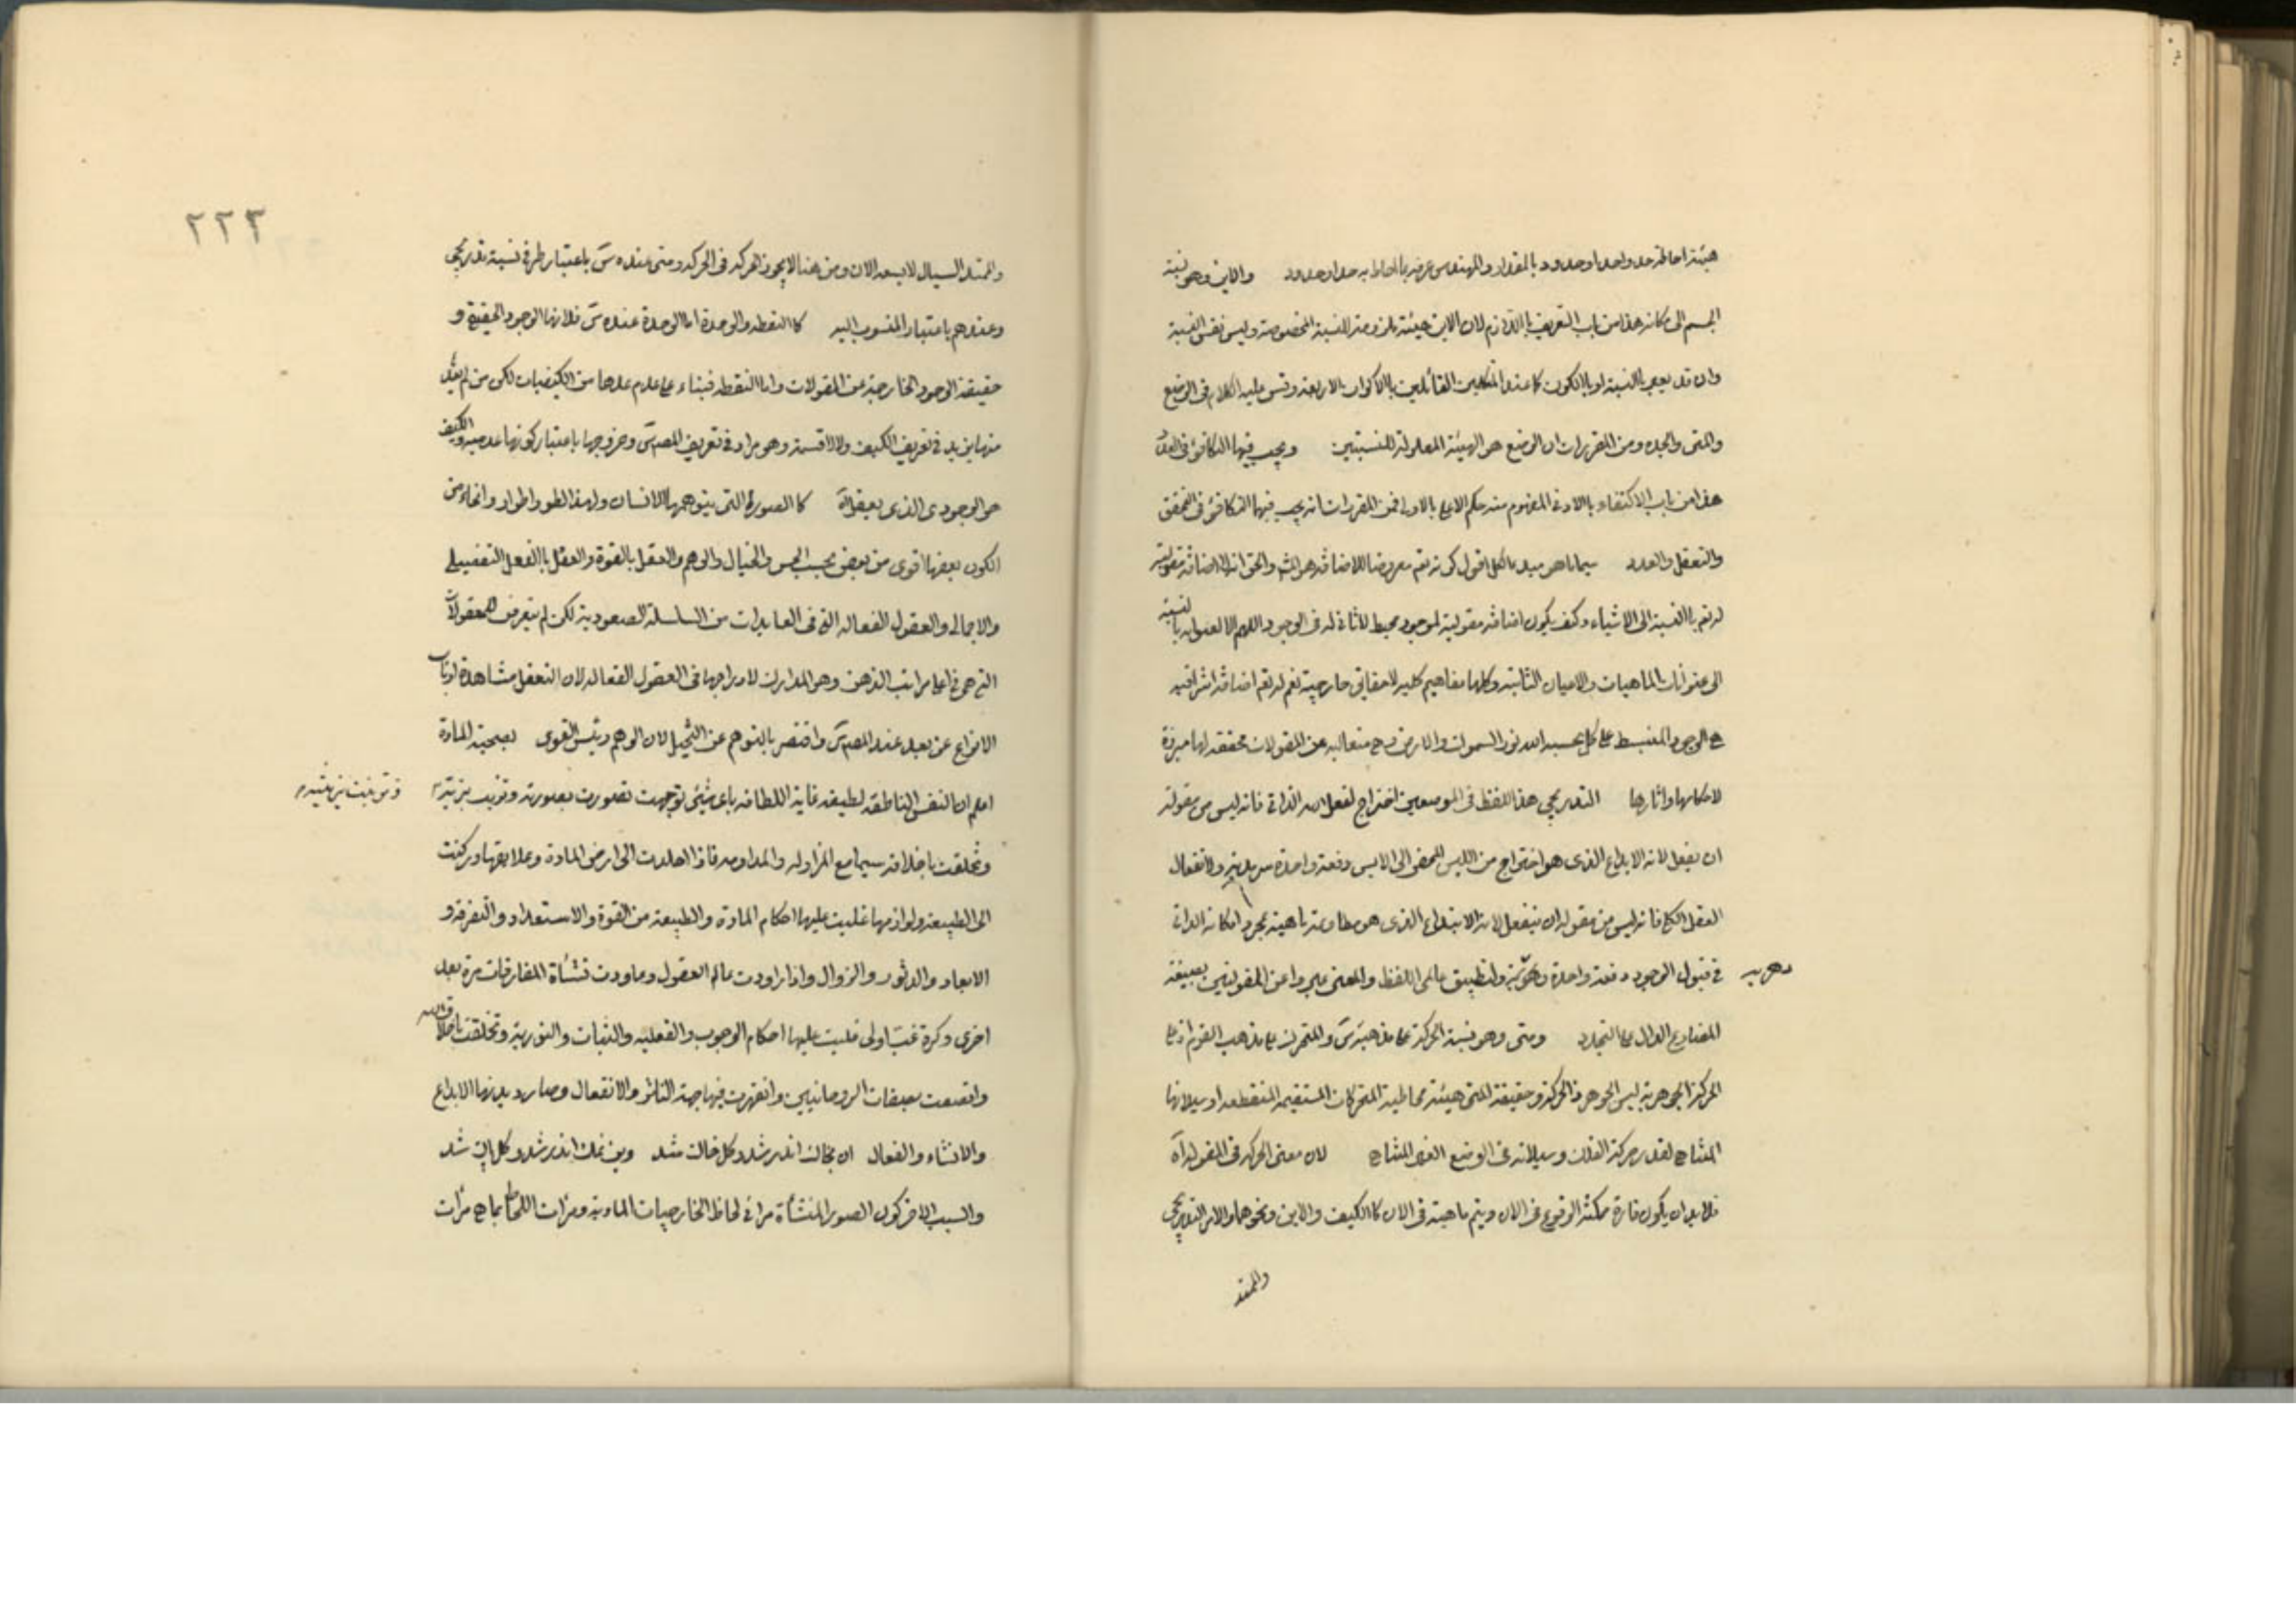 هيئة احاطة حد واحد او حدود بالمقدار والمهندس عرفه بما احاط به حد او حدود والاين وهو نسبة
الجسم الى مكانه هذا من باب التعريف باللازم لان الاين هيئة ملزومة للنسبة المخصوصة وليس نفس النسبة
وان قد يعبر بالنسبة او بالكون كما عند المتكلمين القائلين بالاكوان الاربعة وقس عليه الكلام فى الوضع
والمتى والجدة ومن المقررات ان الوضع هو الهيئة المعلولة للنسبتين ويجب فيها التكافؤ فى العدد
هذا من باب الاكتفاء بالادنى المفهوم منه حكم الاعلى بالاولى فمن المقررات انه يجب فيها التكافؤ فى التحقق
والتعقل والعدد سيما ما هو مبدء الكل اقول كونه تعالى معروضا للاضافة هو المشهور والحق ان لا اضافة مقولية
له تعالى بالنسبة الى الاشياء وكيف يكون اضافة مقولية لموجود محيط لا ثانى له فى الوجود اللهم الا لعنوانه بالنسبة
الى عنوانات الماهيات والاعيان الثابتة وكلها مفاهيم كلية لا حقايق خارجية نعم له تعالى اضافة اشراقية
هى الوجود المنبسط على كل بحسبه الله نور السموات والارض وهى متعالية عن المقولات محققة لها مبرزة
لاحكامها واثارها التدريجى هذا اللفظ فى الموضعين اخراج لفعل الله الذاتى فانه ليس من مقولة
ان يفعل لانه الابداع الذى هو اخراج من الليس المحض الى الايس دفعة واحدة سرمدية ولانفعال
العقل الكلى فانه ليس من مقولة ان ينفعل لانه الابتداع الذى هو مطاوعة ماهيته بمجرد امكانه الذاتى
فى قبول الوجود دفعة واحدة دهرية ولتطبيق عالمى اللفظ والمعنى عبروا عن المقولتين بصيغة
دهرية
المضارع الدال على التجدد ومتى وهو نسبة الحركة على مذهبه س والمتحرك على مذهب القوم اذ على
الحركة الجوهرية ليس الجوهر ذا الحركة وحقيقة المتى هيئة محاطية المتحركات المستقيمة المنقطعة او سيلانها
المتناهى لقدر حركة الفلك وسيلانه فى الوضع الغير المتناهى لان معنى الحركة فى المقولة اه
فلا بد ان يكون قارة ممكنة الوقوع فى الان ويتم ماهيته فى الان كالكيف والاين ونحوهما والامر التدريجى
والممتد
٢٢٣
والممتد السيال لا يسعه الان ومن هنا لا يجوز الحركة فى الحركة ومتى عنده س باعتبار طرفى نسبة تدريجى
وعندهم باعتبار المنسوب اليه كالنقطة والوحدة اما الوحدة عنده س فلانها الوجود الحقيقى و
حقيقة الوجود الخارجية عن المقولات واما النقطة فبناء على عدم عدها من الكيفيات لكن من لم يعد
منها يزيد فى تعريف الكيف ولا لاقسمة وهو مراد فى تعريف المصـ س وخروجها باعتبار كونها عدمية والكيف
هو الوجودى الذى يعقل اه كالصورة التى يتوهمها الانسان ولهذا الطور اطوار وانحاء من
الكون بعضها اقوى من بعض بحسب الحس والخيال والوهم والعقل بالقوة والعقل بالفعل التفصيلى
والاجمالى والعقول الفعالة التى فى العايدات من السلسلة الصعودية لكن لم يتعرض للمعقولات
التى هى فى اعلى مراتب الذهن وهو المدارك لادراجها فى العقول الفعالة لان التعقل مشاهدة ارباب
الانواع عن بعد عند المصـ س واقتصر بالتوهم عن التخيل لان الوهم رئيس القوى بصحبة المادة
اعلم ان النفس الناطقة لطيفة غاية اللطافة باى شيئ توجهت تصورت بصورته وتزيت بزيه
وتخلقت باخلاقه سيما مع المزاولة والمداومة فاذا اخلدت الى ارض المادة وعلايقها وركنت
الى الطبيعة ولوازمها غلبت عليها احكام المادة والطبيعة من القوة والاستعداد والتفرقة و
الابعاد والدثور والزوال واذا راودت عالم العقول وعاودت نشأة المفارقات مرة بعد
اخرى وكرة غب اولى غلبت عليها احكام الوجوب والفعلية والثبات والنورية وتخلقت باخلاق الله
واتصفت بصفات الروحانيين وانقهرت فيها جهة التاثر والانفعال وصار ديدنها الابداع
والانشاء والفعال ان بخاك اندر شد وكل خاك شد وين نمك اندر شد وكل پاك شد
والسبب الاخر كون الصور المنشأة مرائى لحاظ الخارجيات المادية ومرات اللحاظ بما هى مرات